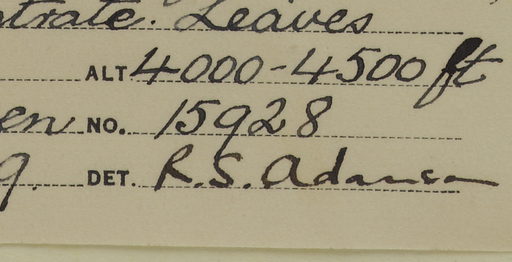 trate. Leaves
ALT 4000-4500 ft
en NO. 15928
9. DET. R.S. Adamson